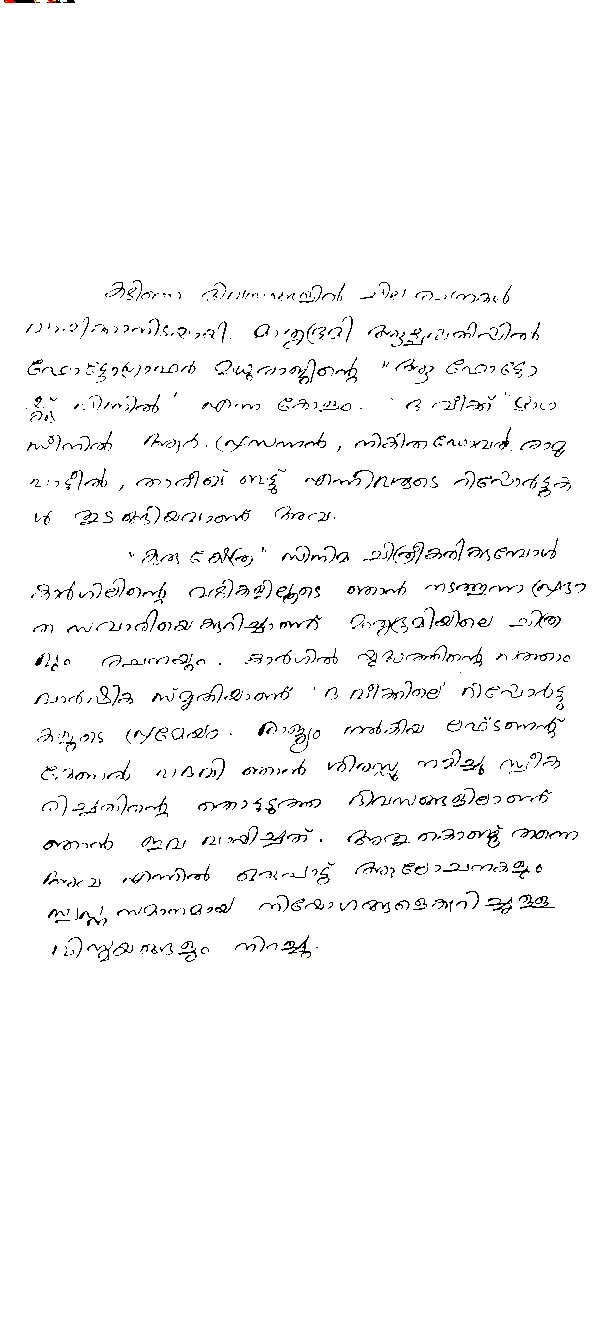 കഴിഞ്ഞ ദിവസങ്ങളിൽ ചില രചനകൾ
വായിക്കാനിടയായി. മാതൃഭൂമി ആഴ്ചപതിപ്പിൽ
ഫോട്ടോഗ്രാഫർ മധുരാജിന്റെ "ആ ഫോട്ടോ
യ്ക്ക് പിന്നിൽ" എന്ന കോളം. 'ദ വീക്ക്' മാഗ
സീനിൽ ആർ. പ്രസന്നൻ, നമ്രത
, താരിഖ് ഭട്ട് എന്നിവരുടെ റിപ്പോർട്ടുക
ൾ ഇടങ്ങിയവാണ് അവ.
"കുരുക്ഷേത്ര" സിനിമ ചിത്രീകരിക്കുമ്പോൾ
കാർഗിലിന്റെ വഴികളിലൂടെ ഞാൻ നടത്തുന്ന പ്രഭാ
ത സവാരിയെകുറിച്ചാണ് മാതൃഭൂമിയിലെ ചിത്ര
വും രചനയും. കാർഗിൽ യുദ്ധത്തിന്റെ പത്താം
വാർഷിക സ്മൃതിയാണ് 'ദ വീക്കിലെ' റിപ്പോർട്ടു
കളുടെ പ്രമേയം. രാജ്യം നൽകിയ ലഫ്ടണന്റ്
കേണൽ പദവി ഞാൻ ശിരസ്സു നമിച്ചു സ്വീക
രിച്ചതിന്റെ തൊട്ടടുത്ത ദിവസങ്ങളിലാണ്
ഞാൻ ഇവ വായിച്ചത്. അതു കൊണ്ട് തന്നെ
അവ എന്നിൽ ഒരുപാട് ആലോചനകളും
സമാനമായ നിയോഗങ്ങളെകുറിച്ചുള്ള
വിസ്മയങ്ങളും നിറച്ചു.